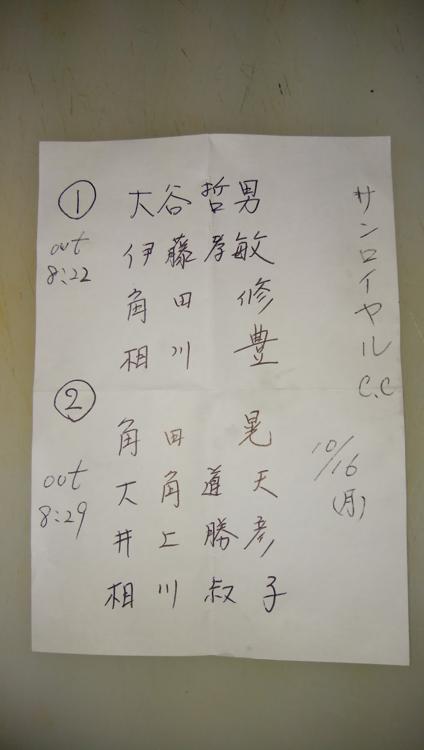 サンロイヤルC.C
10/16
(月)
① 大谷哲男
out 伊藤孝敏
8:22 角田 修
相川 豊
② 角田 晃
out 大角道天
8:29 井上勝彦
相川叔子